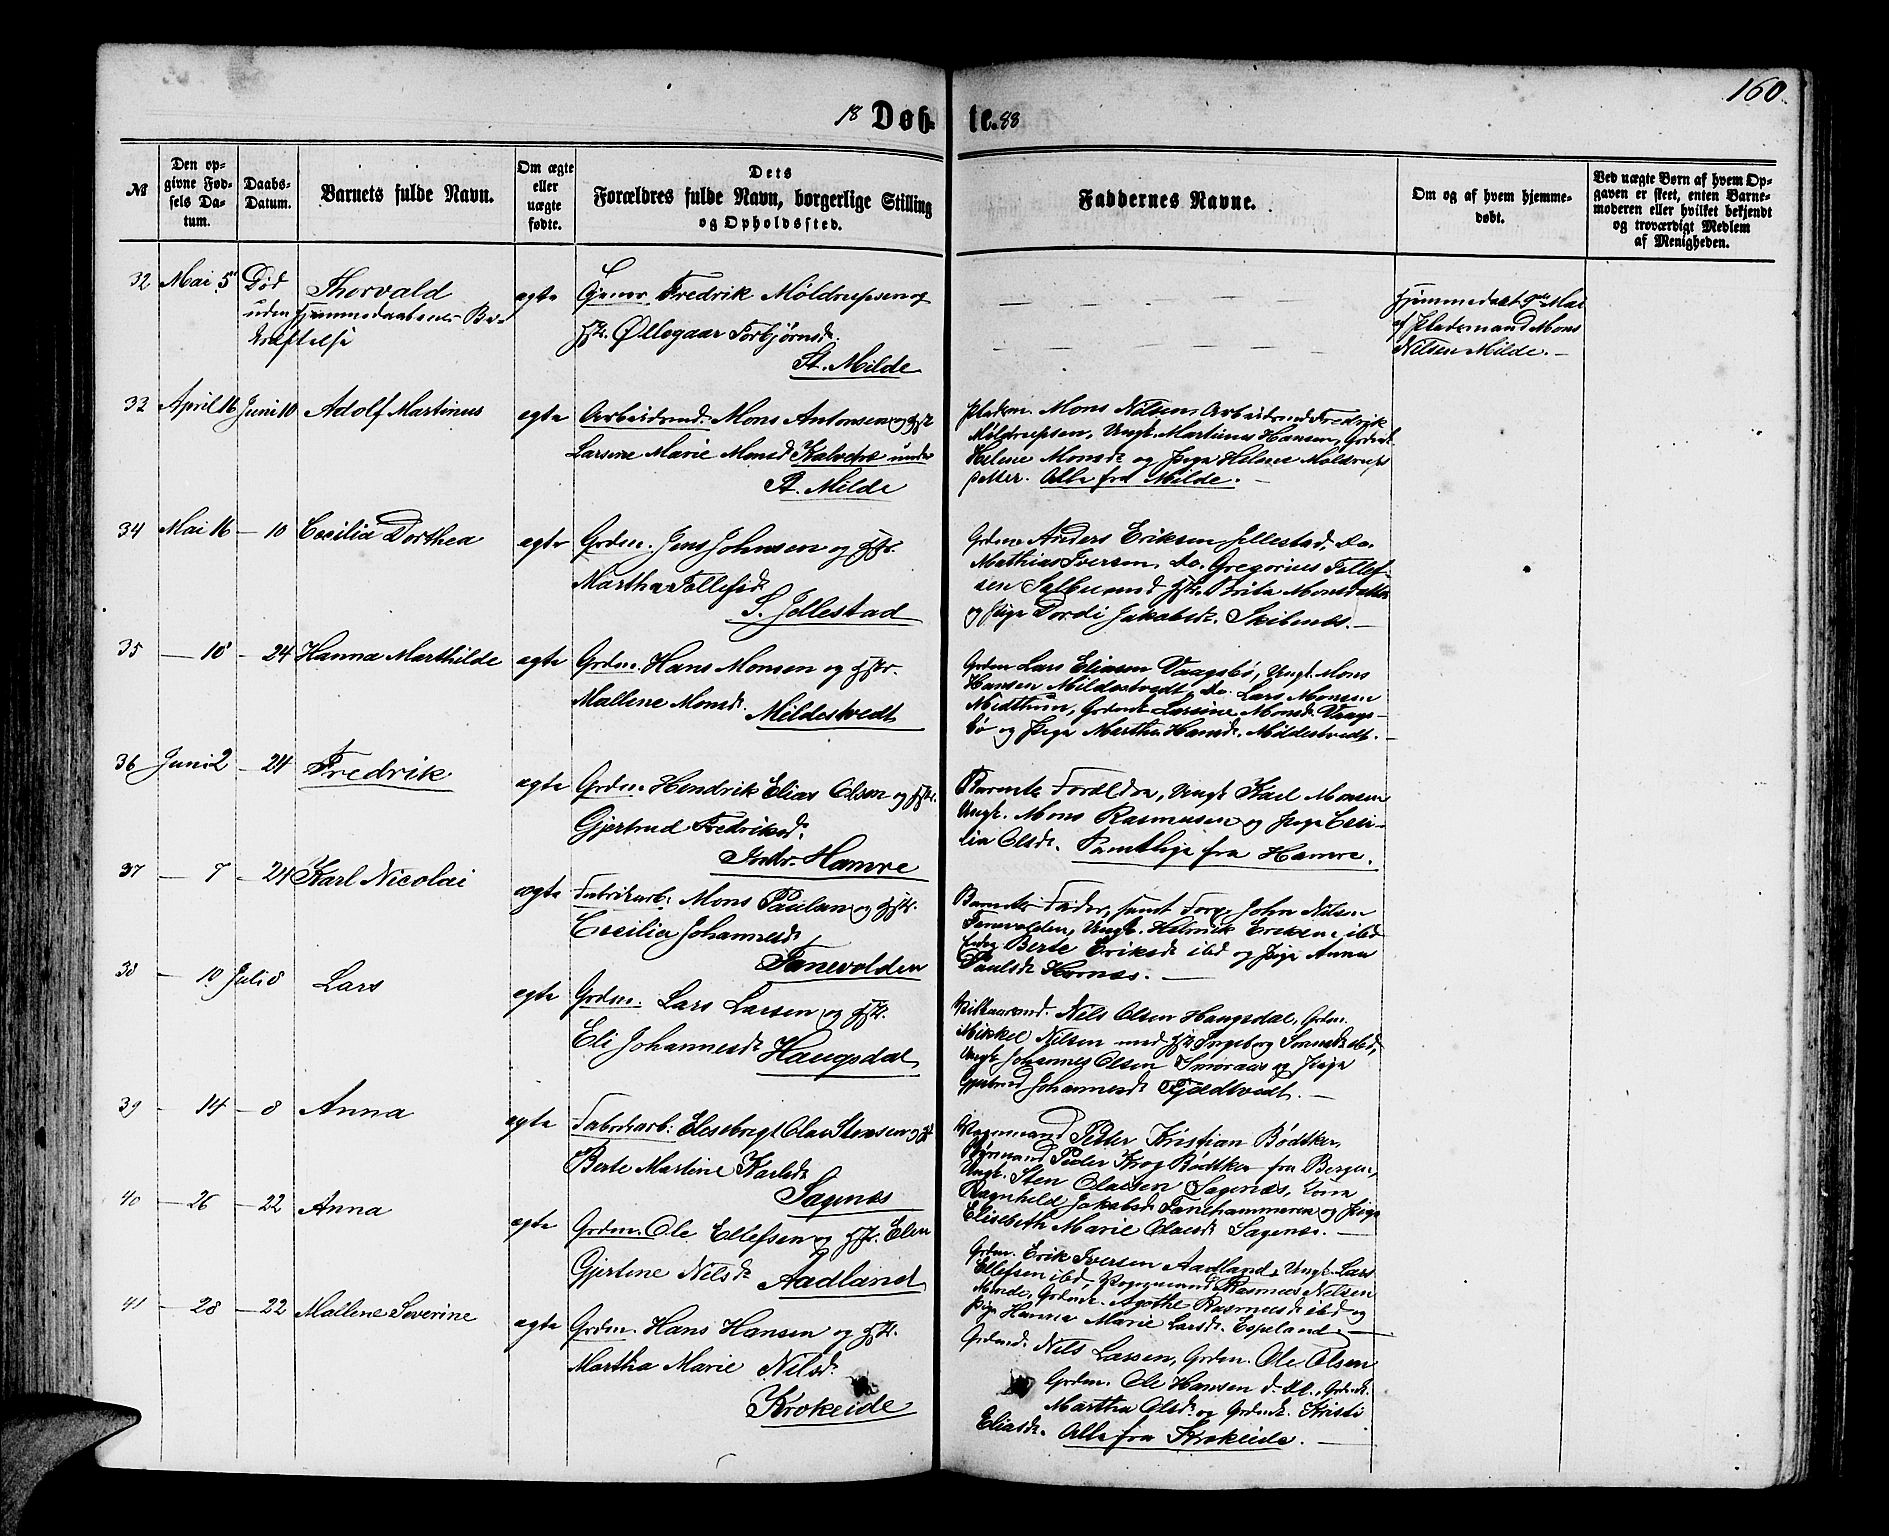 160.
18 Døbte. 88
№
Den opgivne Fødsels Datum.
Daabs-Datum.
Barnets fulde Navn.
Om ægte eller uægte fødte.
Dets Forældres fulde Navn, borgerlige Stilling og Opholdssted.
Faddernes Navne.
Om og af hvem hjemmedøbt.
Ved uægte Børn af hvem Opgaven er skeet, enten Barnemoderen eller hvilket bekjendt og troværdigt Medlem af Menigheden.
32 Mai 5 Død Thorvald
uden Hjemmedaabens Be-
kræftelse
egte
Fredrik Møldrupsen og
Hst. Øllegaar Torbjørnsd.
St. Milde
Hjemmedøbt 9de Mai
af Pladsmand Mons
Nilsen Milde. —
33 April 16 Juni 10 Adolf Martinus
egte
Arbeidsmd. Mons Antonsen og Hst.
Larsine Marie Monsd. Kalvehe under
St. Milde
Pladsm. Mons Nilsen, Arbeidsmd Fredrik
Møldrupsen, Ungk. Martinus Hansen, Grdmk.
Helene Monsd. og Pige Helene Møldrups
datter. Alle fra Milde. —
34 Mai 16 — 10 Cecilia Dorthea
egte
Grdm. Jens Johnsen og Hst.
Martha Tollefsd.
S. Jellestad
Grdm. Anders Eriksen Jellestad, Do.
Mathias Iversen, Do. Gregorius Tollef-
sen Sælbu med Hst. Brita Monsdatter
og Pige Dordi Jakobsd. Skibenes. —
35 — 18 — 24 Hanna Marthilde
egte
Grdm. Hans Monsen og Hst.
Mallene Monsd.
Mildestvedt
Grdm. Lars Eliasen Vaagsbø, Ungk. Mons
Hansen Mildestvedt, Do. Lars Monsen
Midttun, Grdmk. Larsine Monsd. Vaags-
bø og Pige Martha Hansd. Mildestvedt. —
36 Juni 2 — 24 Fredrik
egte
Grdm. Hendrik Elias Olsen og Hst.
Gjertrud Fredriksd.
Indr. Hamre
Barnets Forældre, Ungk. Karl Monsen
Ungk. Mons Rasmusen og Pige Ceci-
lia Olsd. Samtlige fra Hamre.
37 — 7 — 24 Karl Nicolai
ægte
Fabrikarb. Mons Paulsen og Hst.
Cecilia Johannesd.
Fanevolden
Barnets Fader, samt Forp. John Nilsen
Fanevolden, Ungk. Helmik Eriksen ibd
Enke Berte Eriksd. ibd og Pige Anna
Paulsd. Hornæs. —
38 — 19 Juli 8 Lars
egte
Grdm. Lars Larsen og Hst.
Eli Johannesd. Haugsdal
Vilkaarsmd. Nils Olsen Haugsdal, Grdm.
Mikkel Nilsen med Hst. Ingeborg Simensd. ibd,
Ungk. Johannes Olsen Smøraas og Pige
Gjertrud Johannesd. Fjeldtvedt. —
39 — 14 — 8 Anna
egte
Fabrikarb. Elisebrigt Olai Stensen og Hst.
Berte Martine Karlsd.
Sagenes
Vognmand Peter Kristian Bødtker,
Børsmand Peder Krog Bødtker fra Bergen,
Ungk. Sten Olaisen Sagenes, Kona
Ragnhilde Jakobsd. Fanehammeren og Pige
Elisebeth Marie Olaisd. Sagenes. —
40 — 26 — 22 Anna
egte
Grdm. Ole Ellefsen og Hst. Elen
Gjertine Nilsd. Aadland
Grdm. Erik Iversen Aadland, Ungk. Lars
Ellefsen ibd, Rasmus Nilsen
Grdmk. Agathe Rasmusd. ibd og
Pige Hanna Marie Larsd. Espeland. —
41 — 28 — 22 Mallene Severine
egte
Grdm. Hans Hansen og Hst.
Martha Marie Nilsd.
Krokeide
Grdmd. Nils Larsen, Grdm. Ole Olsen
Grdm. Ole Hansen d. Æl., Grdmk.
Martha Olsd. og Grdmk. Kristi
Eliasd. Alle fra Krokeide. —